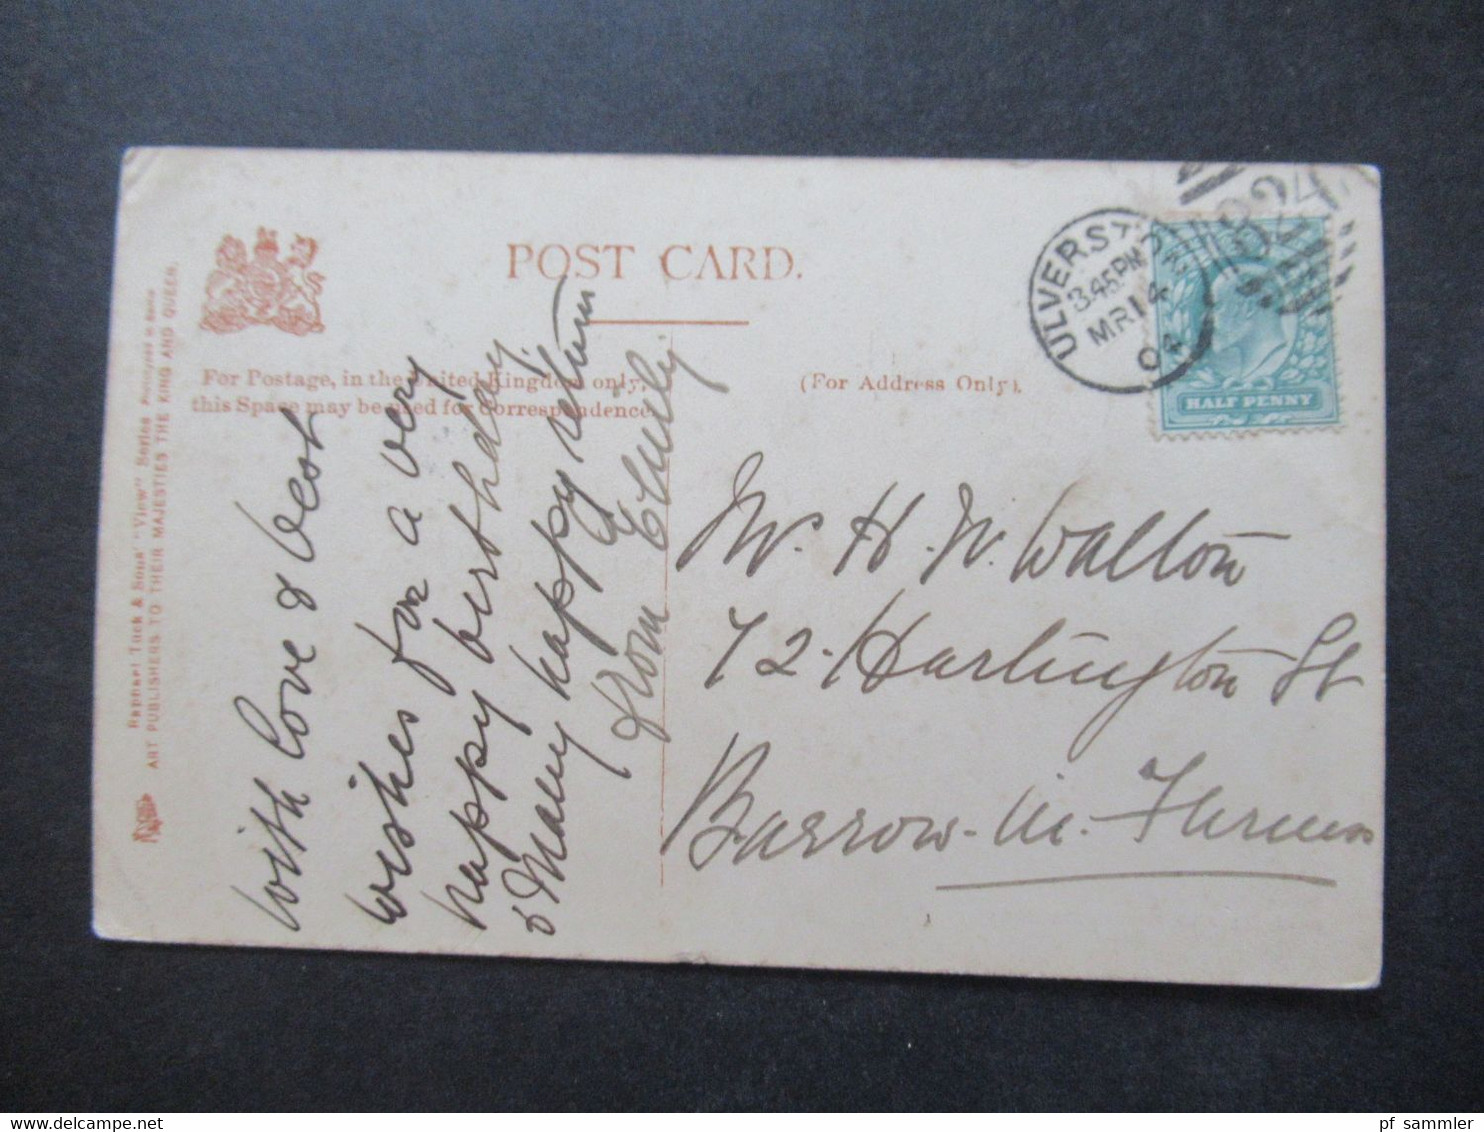 POST CARD.
For Postage, in the United Kingdom only,
this Space may be used for Correspondence.
(For Address Only).
Raphael Tuck & Sons' "View" Series
ART PUBLISHERS TO THEIR MAJESTIES THE KING AND QUEEN.
ULVERSTON
3.45PM
MR 14
04
824
HALF PENNY
With love & best
wishes for a very
happy birthday.
& Many happy returns
from Emily.
Mr. H. W. Walton
72. Harlington St
Barrow-in-Furness
pf sammler